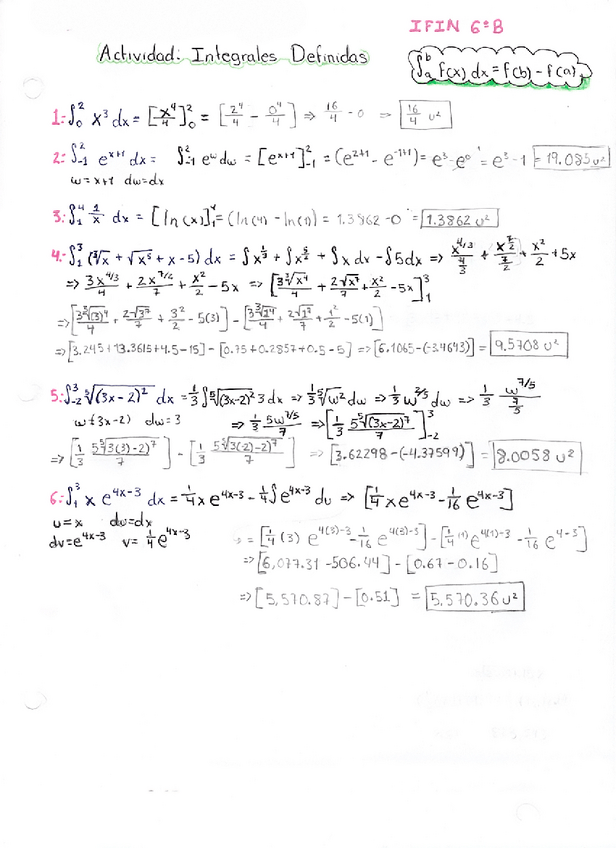 IFIN 6°B
Actividad: Integrales Definidas
∫ₐᵇ f(x) dx = f(b) - f(a)
1: ∫₀² x³ dx = [x⁴/4]₀² = [2⁴/4 - 0⁴/4] ⇒ 16/4 - 0 ⇒ 16/4 u²
2: ∫₋₁² e^(x+1) dx = ∫₋₁² e^w dw = [e^(x+1)]₋₁² = (e^(2+1) - e^(-1+1)) = e³ - e⁰ = e³ - 1 = 19.085 u²
w = x+1 dw = dx
3: ∫₁⁴ 1/x dx = [ln(x)]₁⁴ = (ln(4) - ln(1)) = 1.3862 - 0 = 1.3862 u²
4: ∫₁³ (∛x + √x⁵ + x - 5) dx = ∫x^(1/3) + ∫x^(5/2) + ∫x dx - ∫5dx ⇒ x^(4/3)/(4/3) + x^(7/2)/(7/2) + x²/2 + 5x
⇒ 3x^(4/3)/4 + 2x^(7/2)/7 + x²/2 - 5x ⇒ [3∛x⁴/4 + 2√x⁷/7 + x²/2 - 5x]₁³
⇒ [3∛(3)⁴/4 + 2√3⁷/7 + 3²/2 - 5(3)] - [3∛1⁴/4 + 2√1⁷/7 + 1²/2 - 5(1)]
⇒ [3.245 + 13.3615 + 4.5 - 15] - [0.75 + 0.2857 + 0.5 - 5] ⇒ [6.1065 - (-3.4643)] = 9.5708 u²
5: ∫₋₂³ ⁵√(3x-2)² dx = 1/3 ∫ ⁵√(3x-2)² 3 dx ⇒ 1/3 ⁵√w² dw ⇒ 1/3 w^(2/5) dw ⇒ 1/3 w^(7/5)/(7/5)
w = (3x-2) dw = 3 ⇒ 1/3 5w^(7/5)/7 ⇒ [1/3 5⁵√(3x-2)⁷/7]₋₂³
⇒ [1/3 5⁵√3(3)-2)⁷/7] - [1/3 5⁵√3(-2)-2)⁷/7] ⇒ [3.62298 - (-4.37599)] = 8.0058 u²
6: ∫₁³ x e^(4x-3) dx = 1/4 x e^(4x-3) - 1/4 ∫ e^(4x-3) du ⇒ [1/4 x e^(4x-3) - 1/16 e^(4x-3)]
u = x du = dx
dv = e^(4x-3) v = 1/4 e^(4x-3)
⇒ = [1/4 (3) e^(4(3)-3) - 1/16 e^(4(3)-3)] - [1/4 (1) e^(4(1)-3) - 1/16 e^(4-3)]
⇒ [6,077.31 - 506.44] - [0.67 - 0.16]
⇒ [5,570.87] - [0.51] = 5.570.36 u²